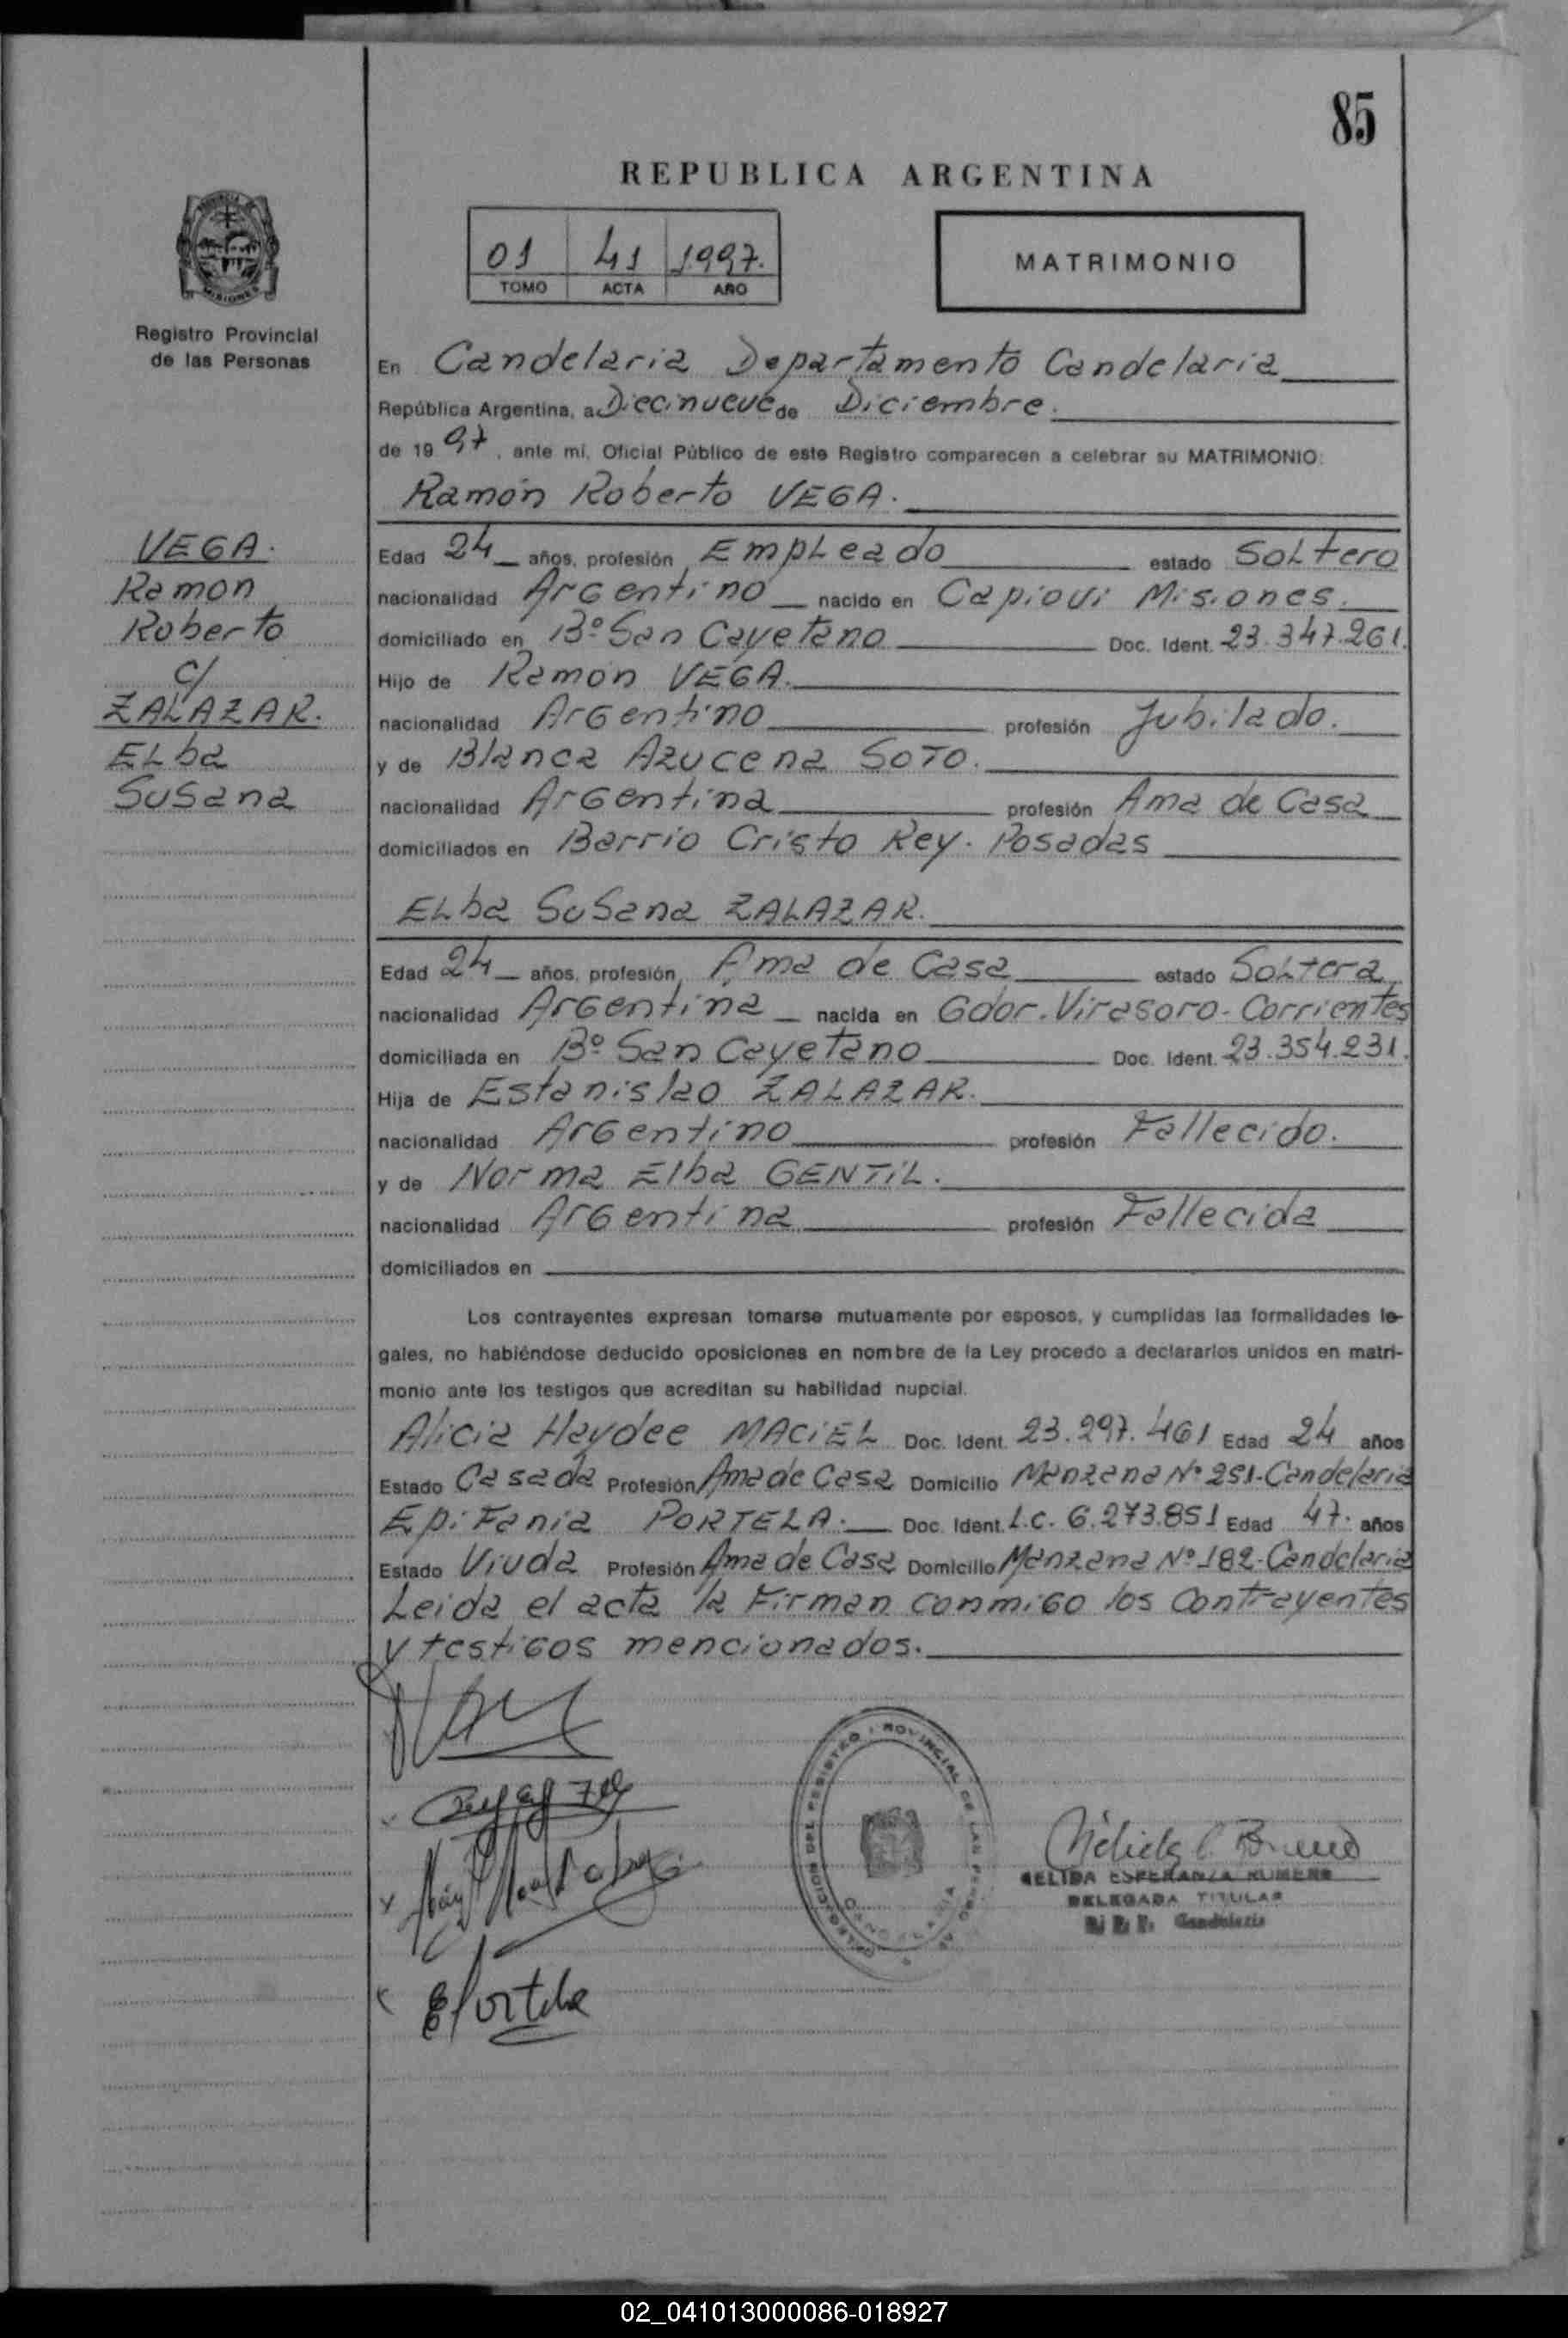 85
REPUBLICA ARGENTINA
01 41 1997.
TOMO ACTA AÑO
MATRIMONIO
MISIONES
Registro Provincial
de las Personas
En Candelaria Departamento Candelaria
República Argentina, a Diecinueve de Diciembre.
de 19 97, ante mí, Oficial Público de este Registro comparecen a celebrar su MATRIMONIO:
Ramón Roberto VEGA.
VEGA.
Ramon
Roberto
c/
ZALAZAR.
ELba
Susana
Edad 24 años, profesión Empleado estado Soltero
nacionalidad Argentino nacido en Capiovi Misiones.
domiciliado en Bº San Cayetano Doc. Ident. 23.347.261.
Hijo de Ramón VEGA.
nacionalidad Argentino profesión Jubilado.
y de Blanca Azucena SOTO.
nacionalidad Argentina profesión Ama de Casa
domiciliados en Barrio Cristo Rey. Posadas
ELba Susana ZALAZAR.
Edad 24 años, profesión Ama de Casa estado Soltera
nacionalidad Argentina nacida en Gdor. Virasoro - Corrientes
domiciliada en Bº San Cayetano Doc. Ident. 23.354.231.
Hija de Estanislao ZALAZAR.
nacionalidad Argentino profesión Fallecido.
y de Norma Elba GENTIL.
nacionalidad Argentina profesión Fallecida
domiciliados en
Los contrayentes expresan tomarse mutuamente por esposos, y cumplidas las formalidades le-
gales, no habiéndose deducido oposiciones en nombre de la Ley procedo a declararlos unidos en matri-
monio ante los testigos que acreditan su habilidad nupcial.
Alicia Haydee MACIEL Doc. Ident. 23.297.461 Edad 24 años
Estado Casada Profesión Ama de Casa Domicilio Manzana Nº 251-Candelaria
Epifania PORTELA. Doc. Ident. L.C. 6.273.851 Edad 47. años
Estado Viuda Profesión Ama de Casa Domicilio Manzana Nº 182-Candelaria
Leida el acta la Firman conmigo los Contrayentes
y testigos mencionados.
DELEGACION DEL REGISTRO PROVINCIAL DE LAS PERSONAS
CANDELARIA
EPortela
DELEGADA TITULAR
Candelaria
02_041013000086-018927